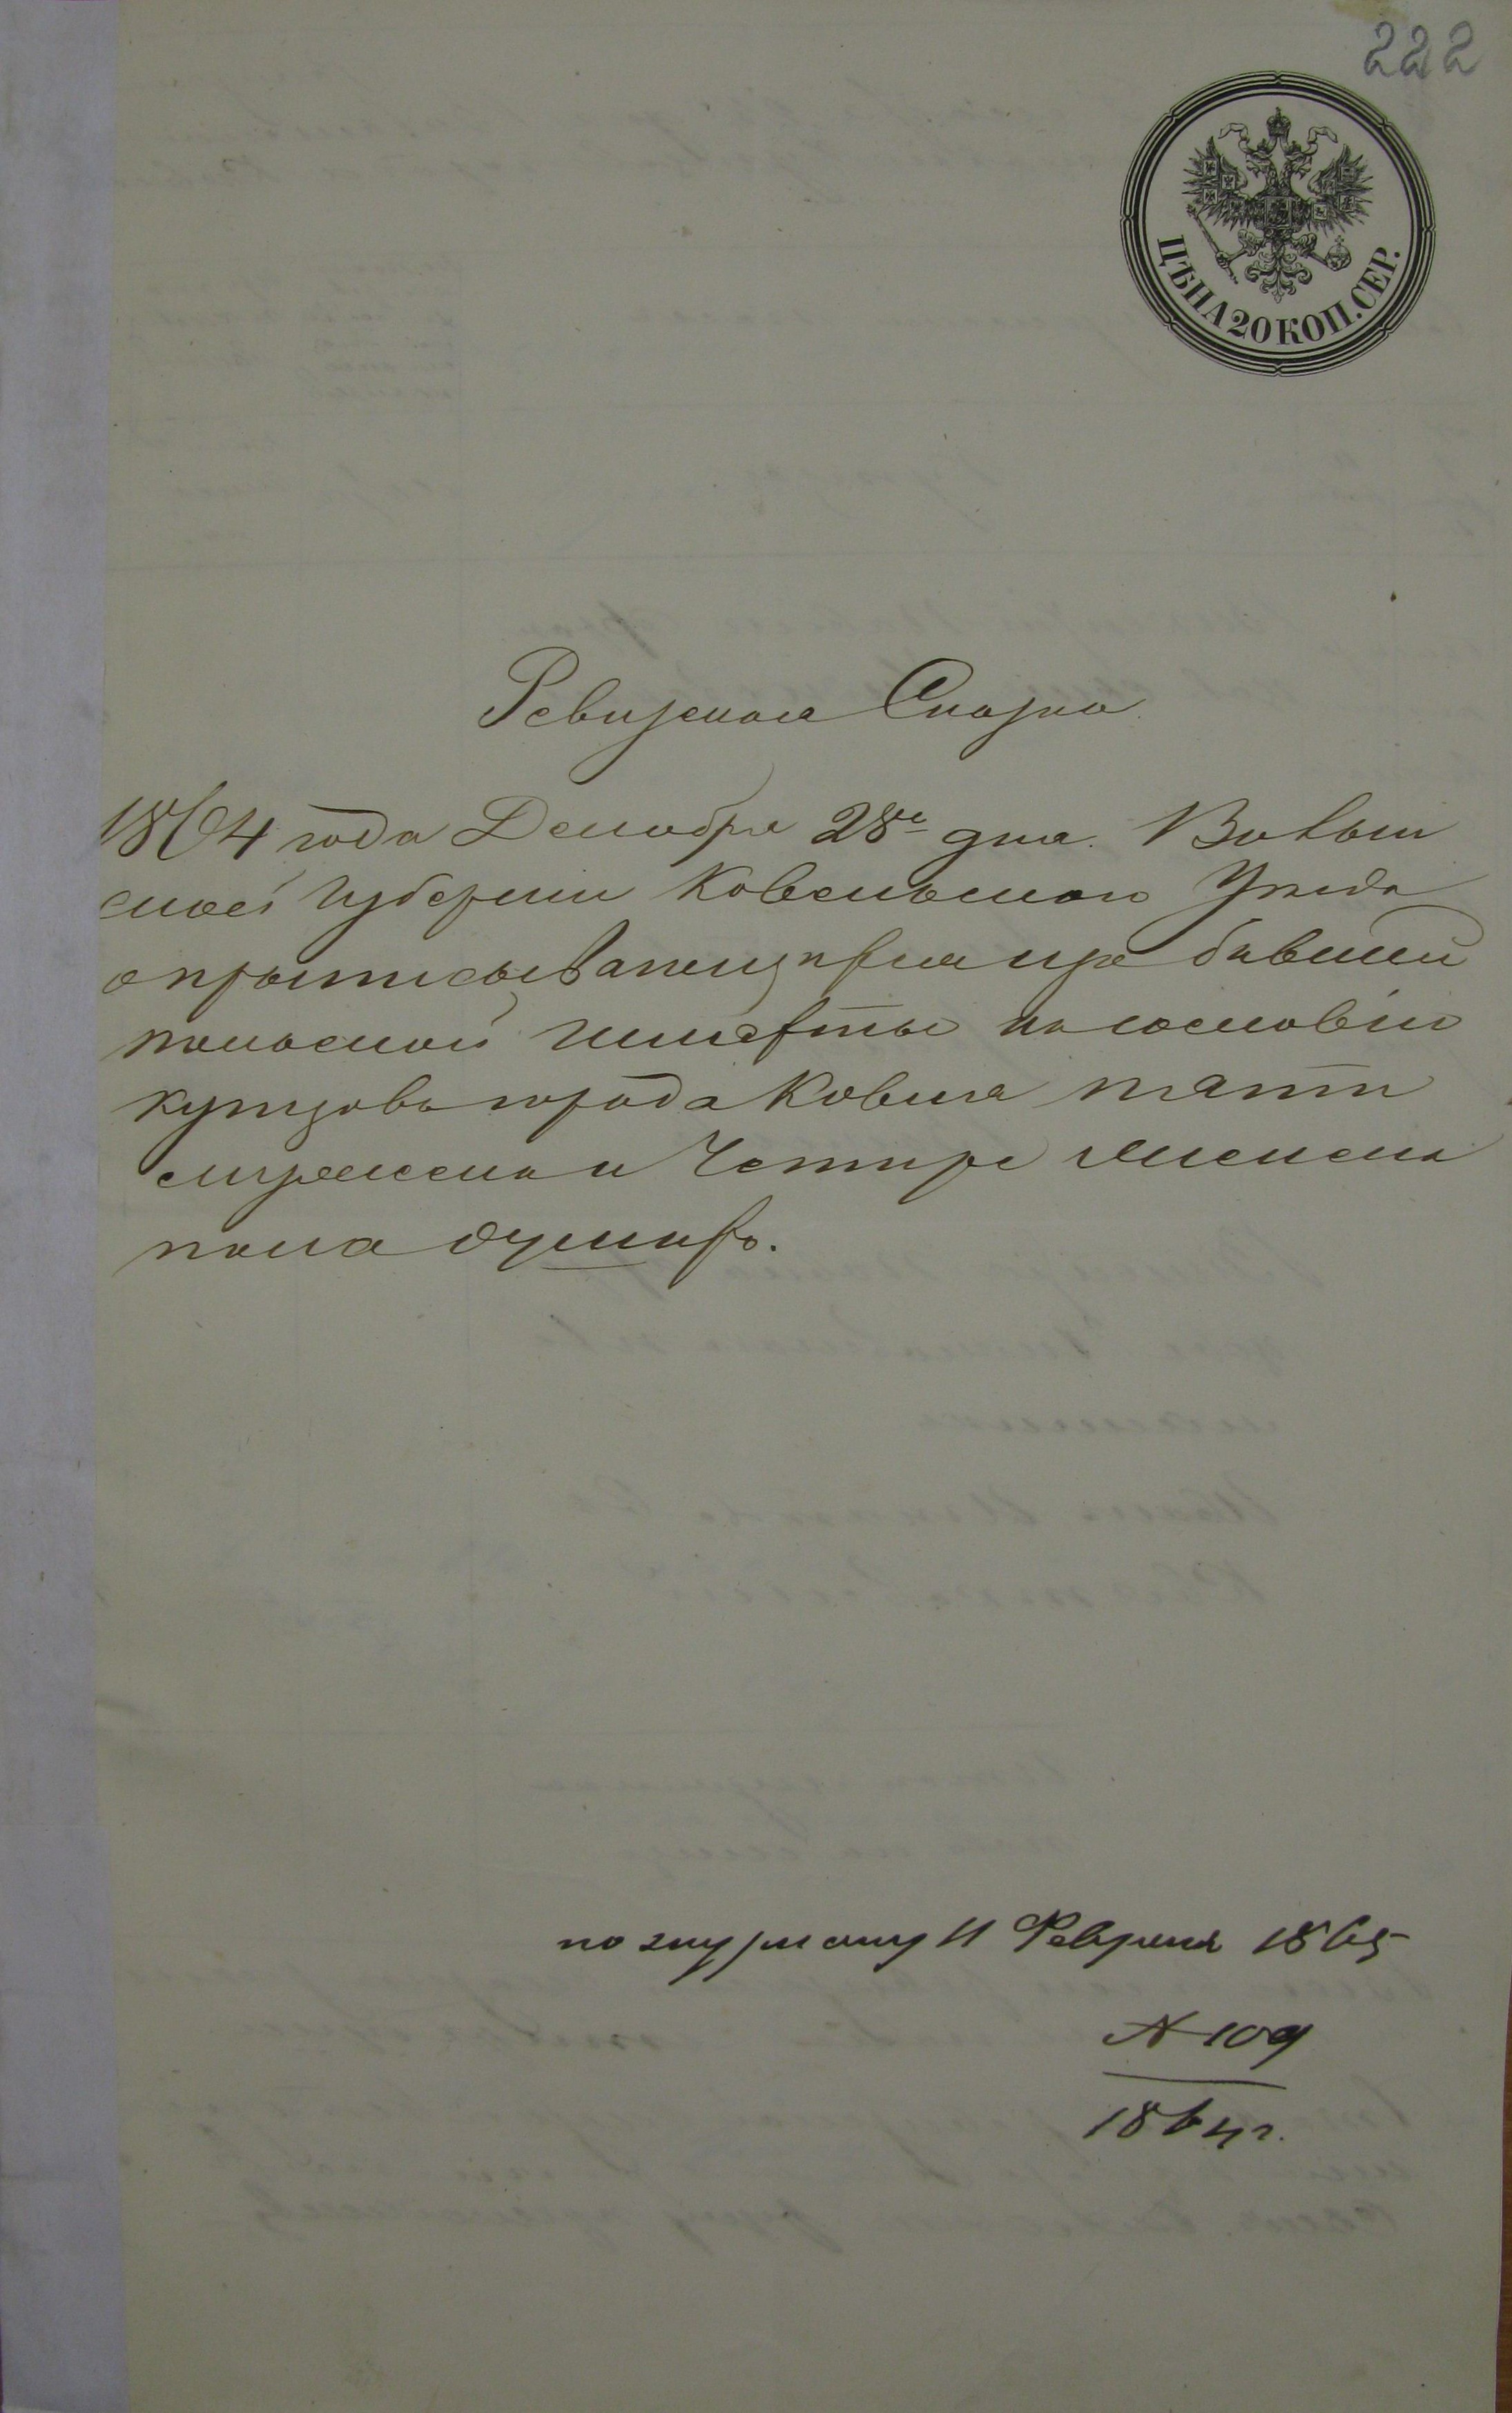 222
ЦѢНА 20 КОП. СЕР.
Ревизская Сказка
1864 года Декабря 28го дня. Волын
ской Губернии Ковельскаго Уезда
о приписывающихся изъ бывшей
польской шляхты на сословiи
купцовъ города Ковля пяти
мужеска и Четыре женска
пола душахъ.
по журналу 11 Февраля 1865
№ 109
1864 г.